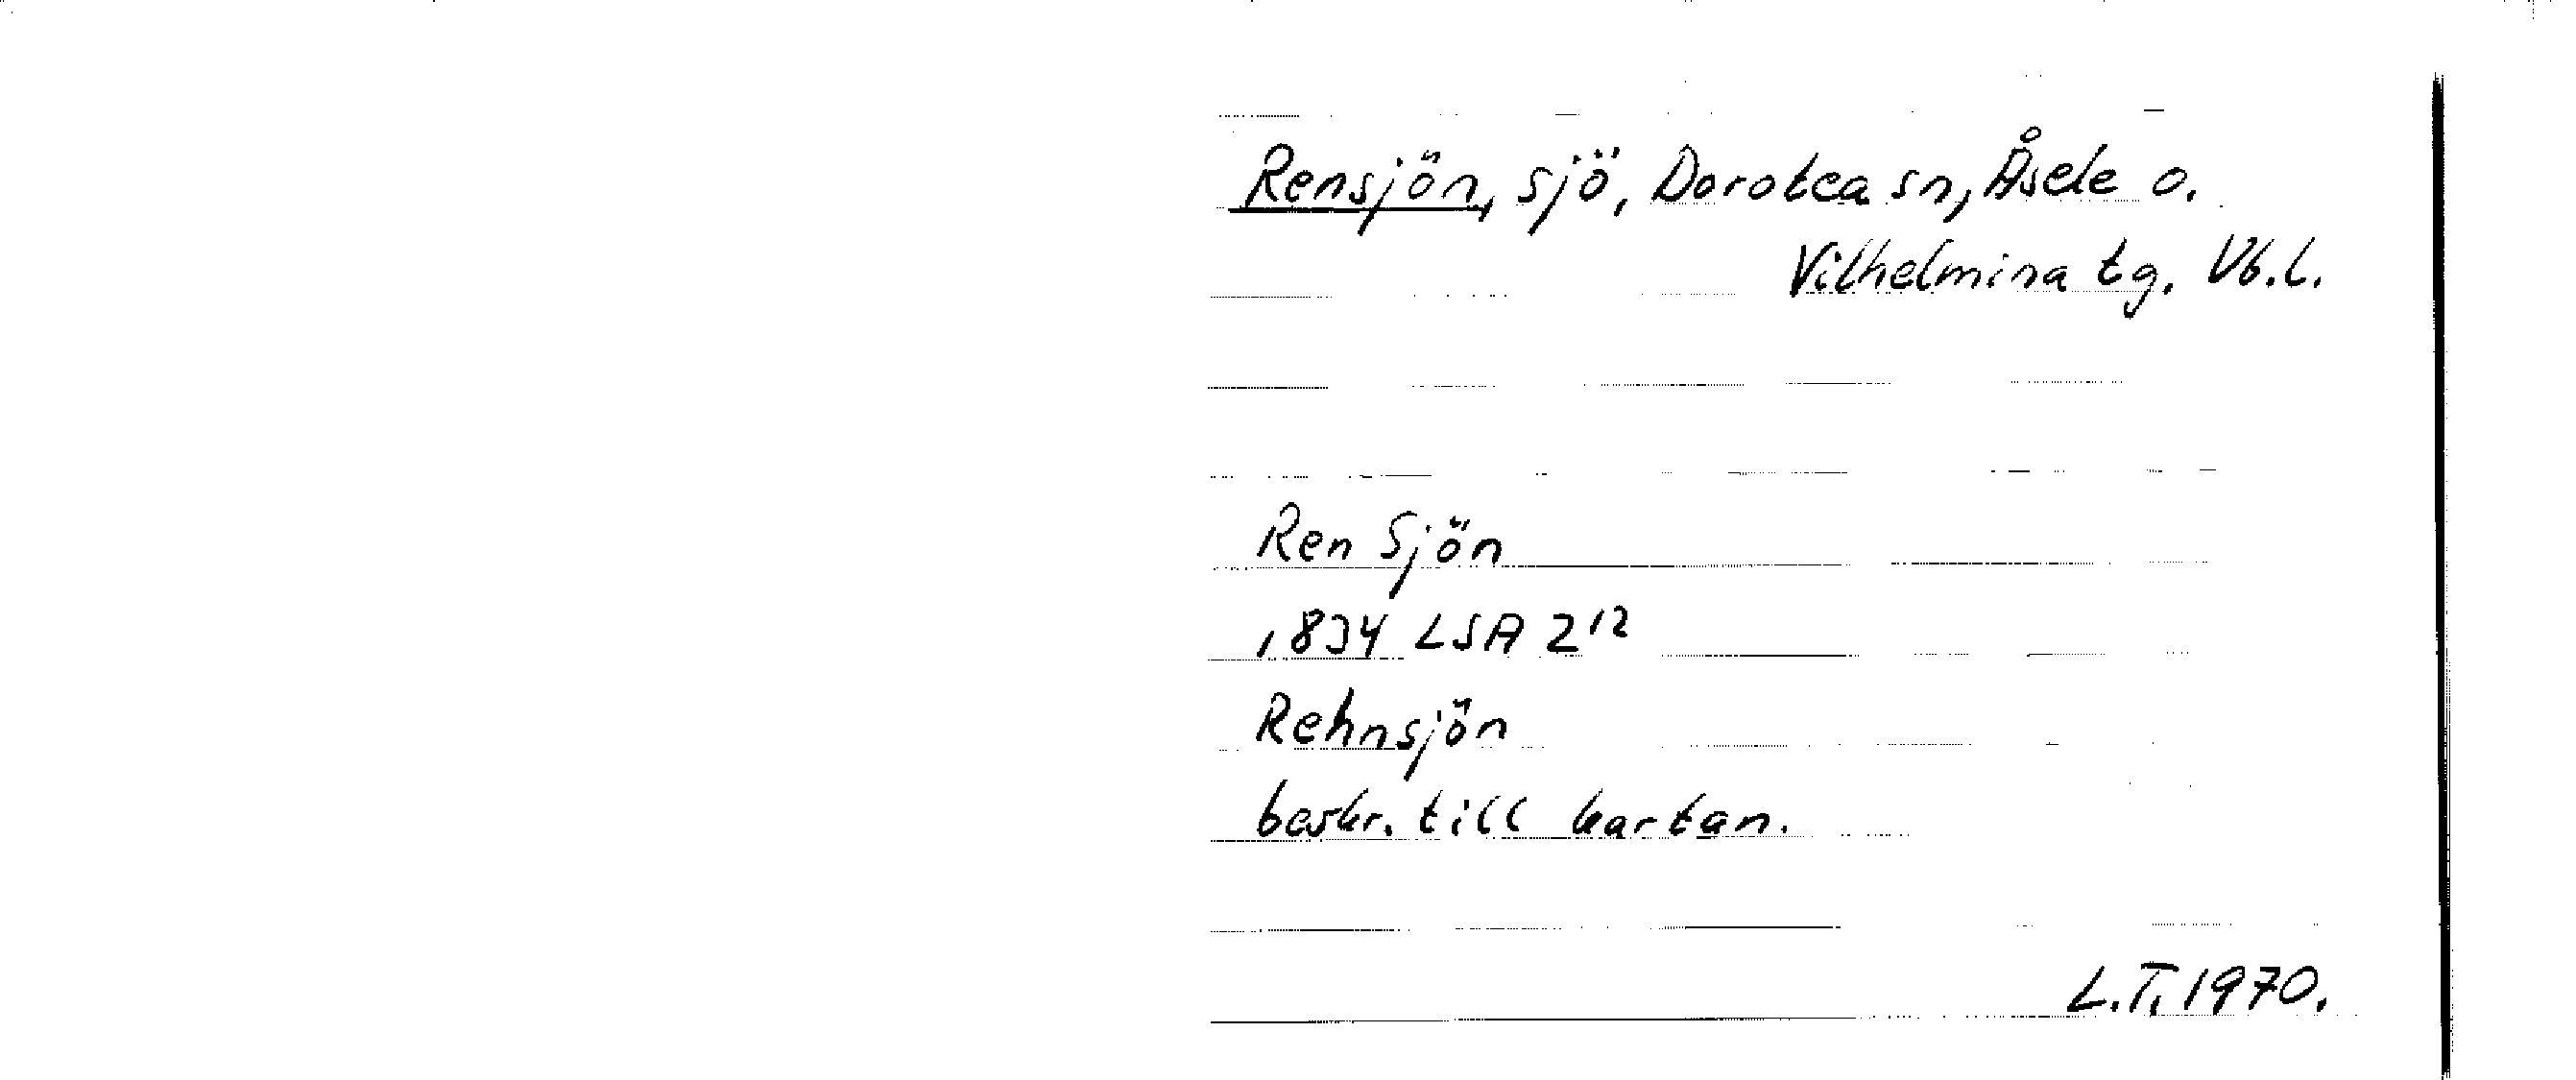 Rensjön, sjö, Dorotea sn, Åsele o.
Vilhelmina tg. Vb.l.
Ren Sjön
1834 LSA 2¹²
Rehnsjön
beskr. till kartan.
L.T. 1970.